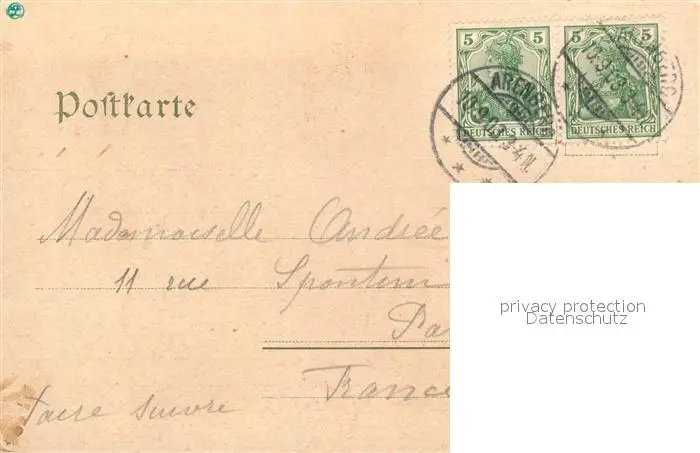 5 5 5 5
DEUTSCHES REICH DEUTSCHES REICH
Postkarte
Mademoiselle Andrée
11 rue Spontini
Pa
France
faire suivre
privacy protection
Datenschutz